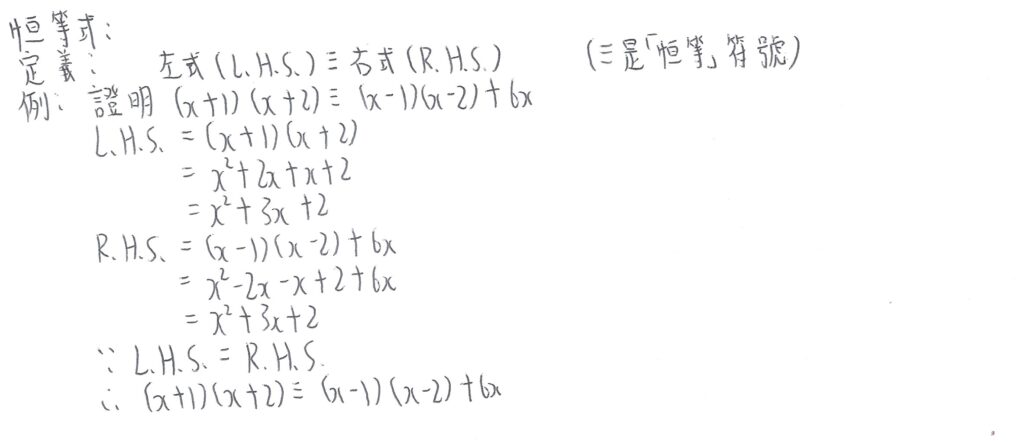 恒等式:
定義: 左式(L.H.S.)≡右式(R.H.S.) (≡是「恒等」符號)
例: 證明 (x+1)(x+2)≡(x-1)(x-2)+6x
L.H.S. = (x+1)(x+2)
= x²+2x+x+2
= x²+3x+2
R.H.S. = (x-1)(x-2)+6x
= x²-2x-x+2+6x
= x²+3x+2
∵ L.H.S. = R.H.S.
∴ (x+1)(x+2)≡(x-1)(x-2)+6x